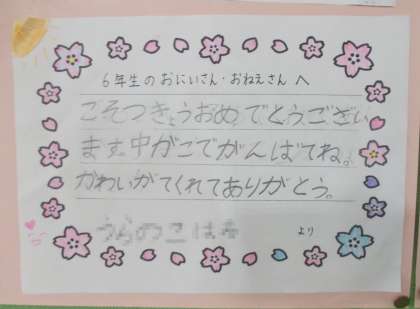 6年生のおにいさん・おねえさんへ
ごそつぎょうおめでとうござい
ます。中がこでがんばてね。
かわいがてくれてありがとう。
より